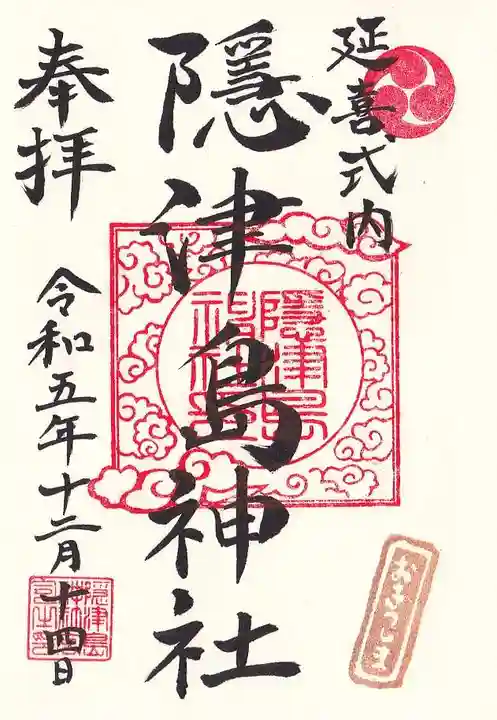 延喜式内
隠津島神社
奉拝
令和五年十二月十四日
隠津島神社
おきつしま